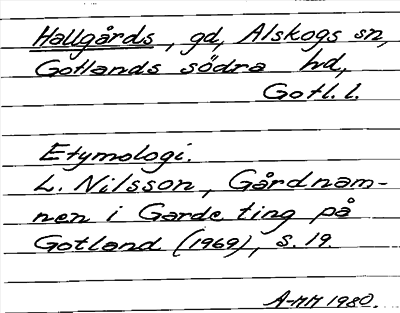 Hallgårds, gd, Alskogs sn,
Gotlands södra hd,
Gotl. l.
Etymologi.
L. Nilsson, Gårdnam-
nen i Garde ting på
Gotland (1969), s. 19.
A-MH 1980.